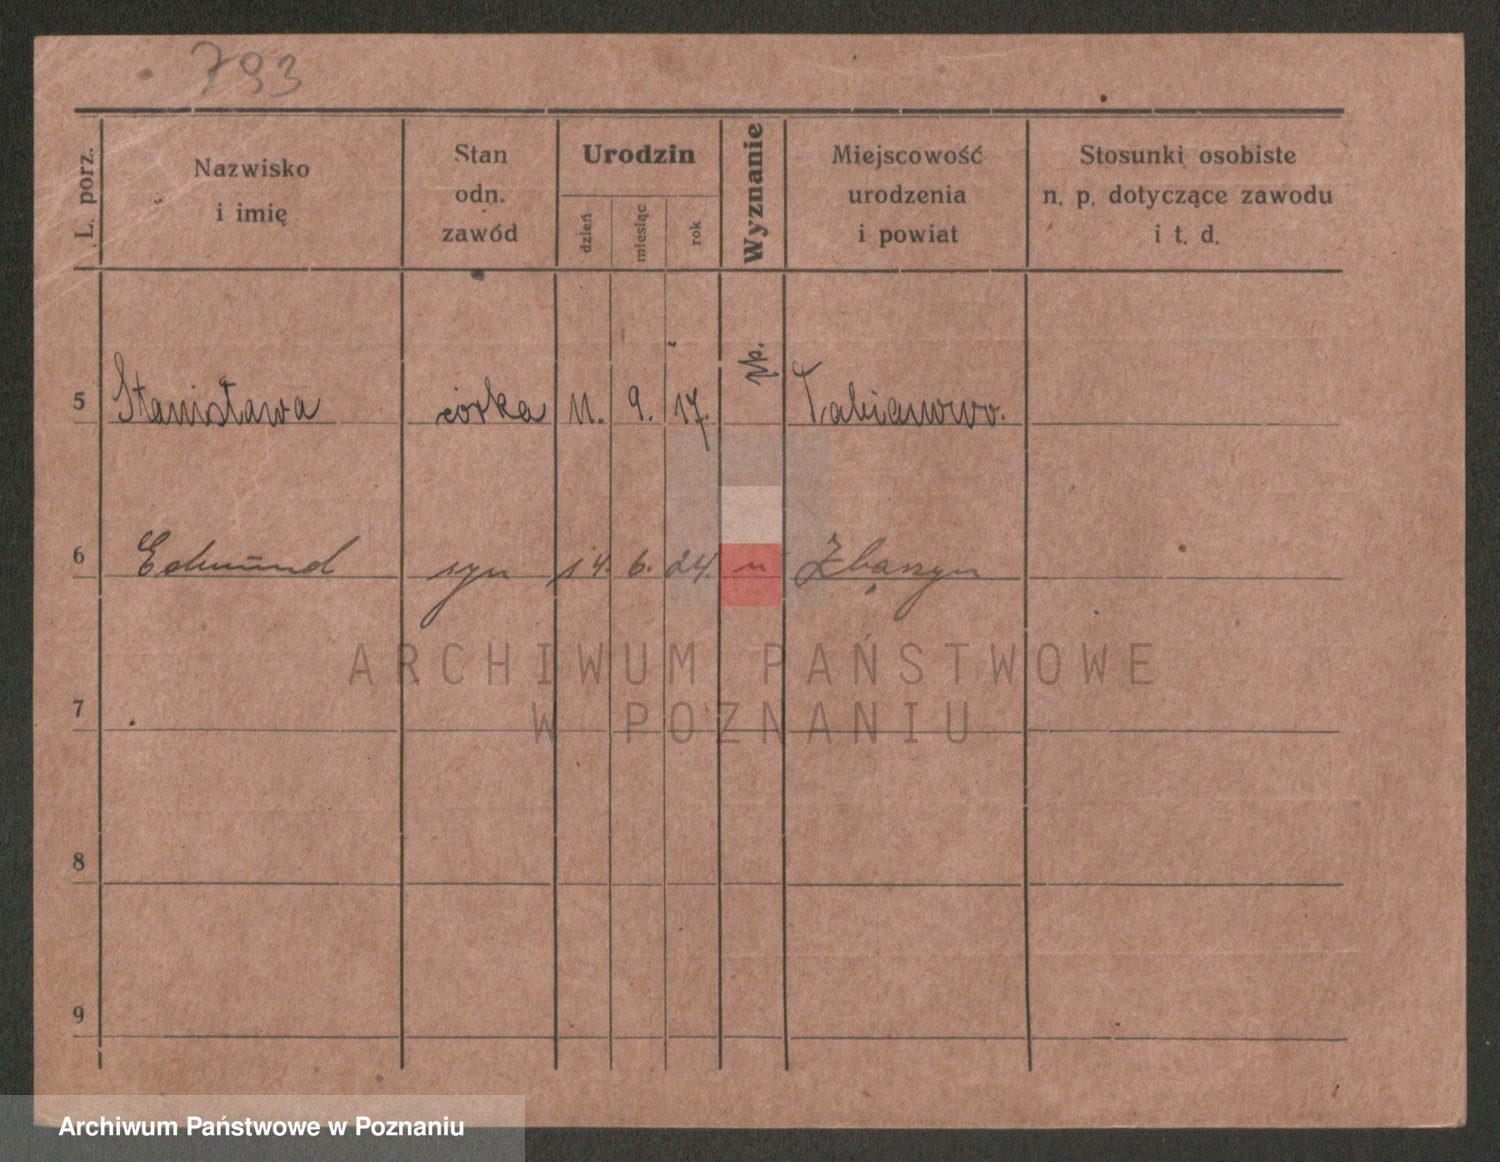 793
L. porz.
Nazwisko
i imię
Stan
odn.
zawód
Urodzin
dzień
miesiąc
rok
Wyznanie
Miejscowość
urodzenia
i powiat
Stosunki osobiste
n. p. dotyczące zawodu
i t. d.
5 Stanisława córka 11. 9. 17.
6 Edmund syn 14. 6. 24. " Zbąszyn
7
8
9
ARCHIWUM PAŃSTWOWE
W POZNANIU
Archiwum Państwowe w Poznaniu